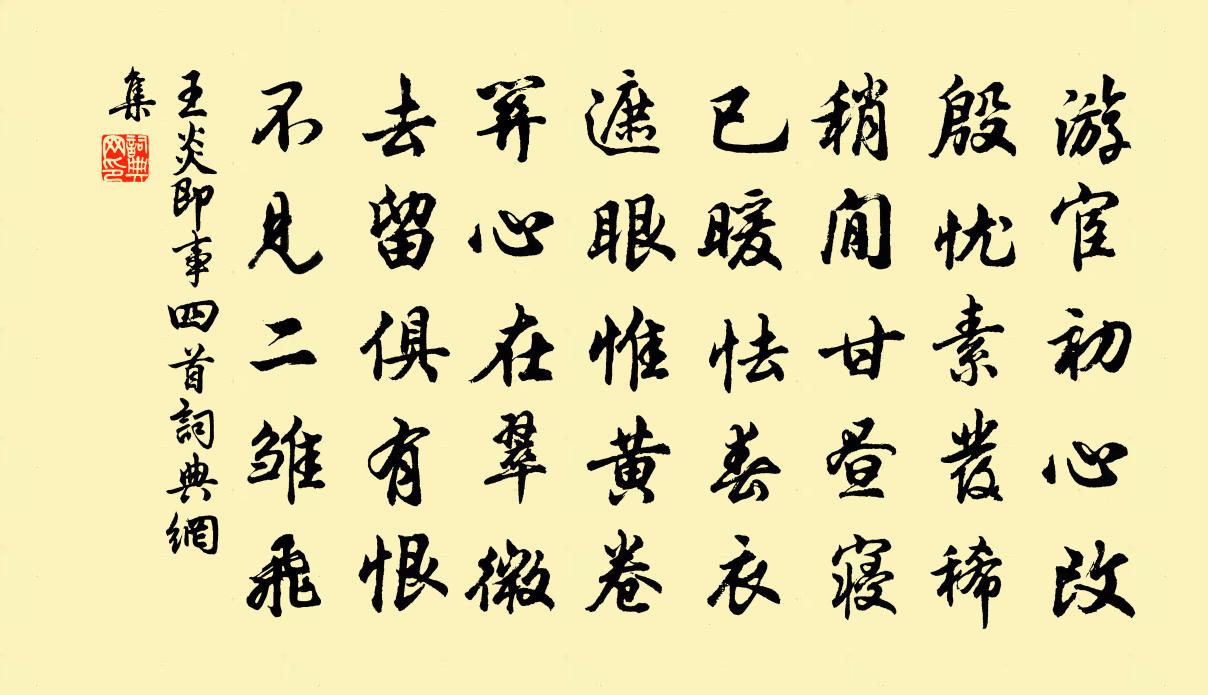 游宦初心改
殷忧素發稀
稍閒甘昼寝
已暖怯春衣
遮眼惟黄卷
关心在翠微
去留俱有恨
不见二雏飛
王炎即事四首詞典網
集
詞典
网印